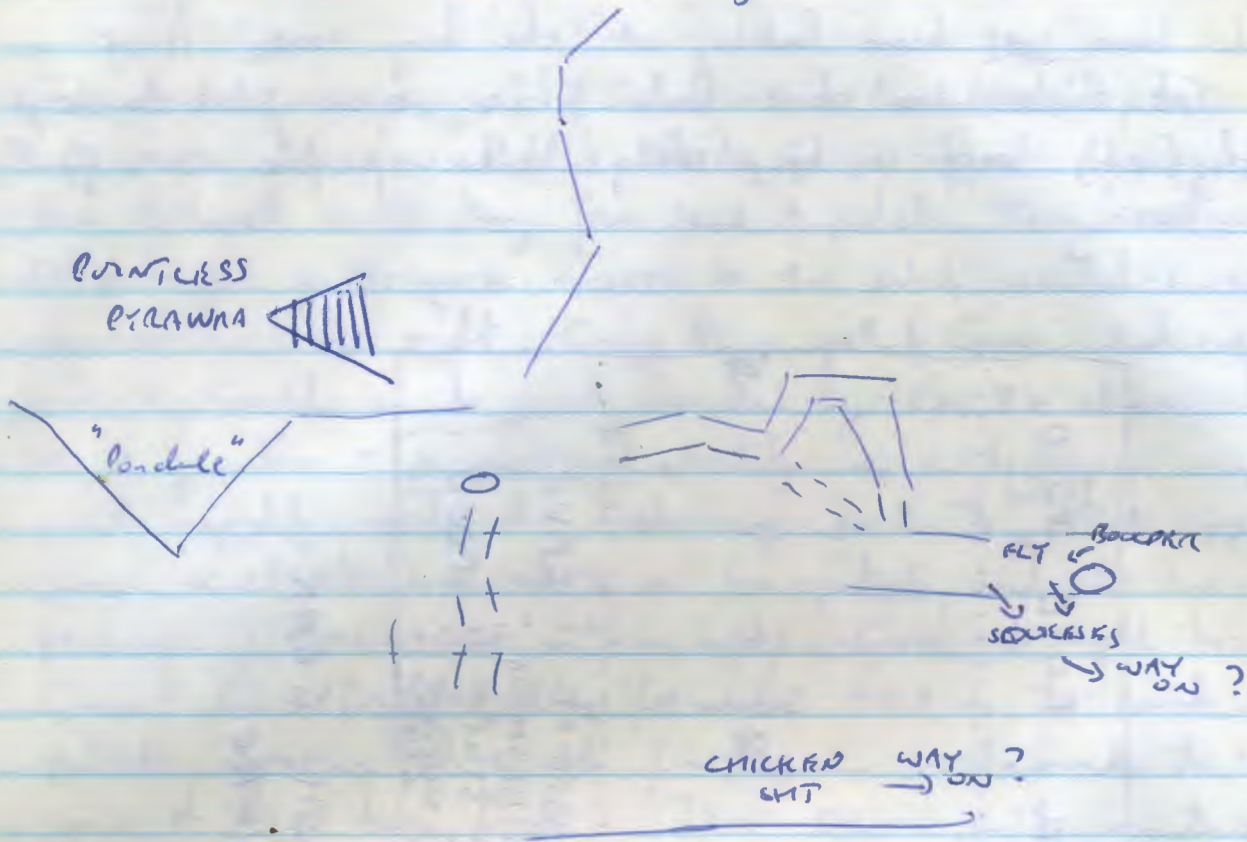 POINTLESS
PYRAMID
"Pendule"
FLY
BOULDER
SQUEEZES
WAY
ON ?
CHICKEN WAY ?
SHIT ON